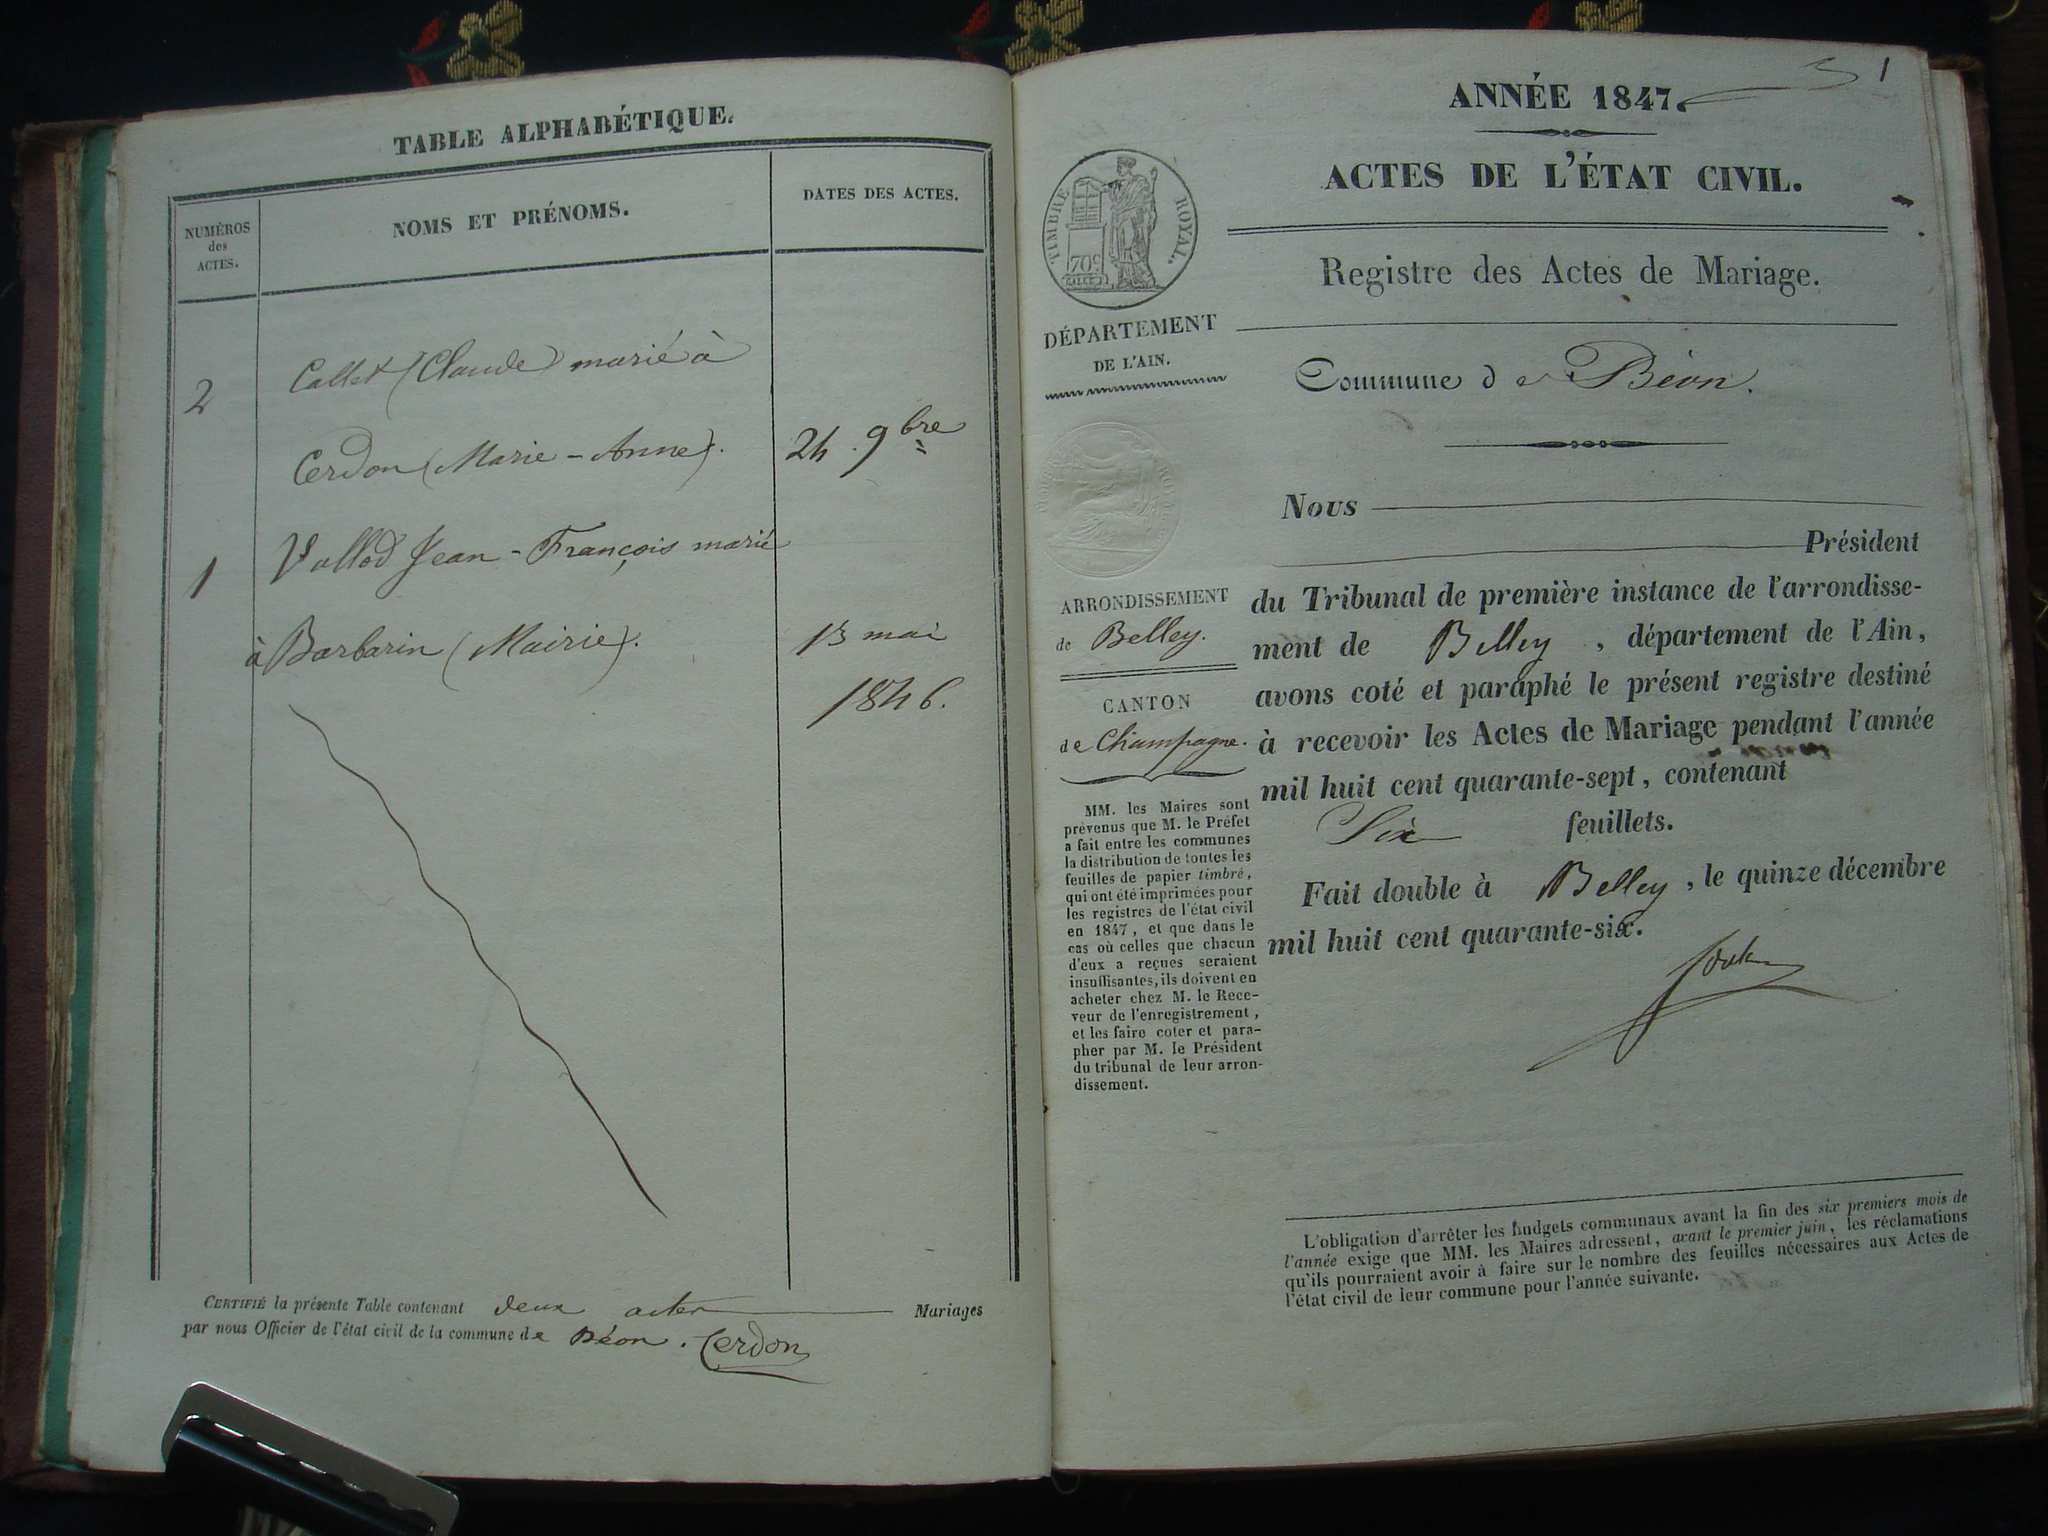 TABLE ALPHABÉTIQUE.
NUMÉROS
des
ACTES.
NOMS ET PRÉNOMS.
DATES DES ACTES.
2
Callet (Claude) marié à
Cerdon (Marie-Anne).
24 9bre
1
Vallod Jean-François marié
à Barbarin (Mairie).
13 mai
1846.
CERTIFIÉ la présente Table contenant deux actes Mariages
par nous Officier de l'état civil de la commune de Béon. Cerdon
1
ANNÉE 1847.
ACTES DE L'ÉTAT CIVIL.
Registre des Actes de Mariage.
TIMBRE ROYAL.
70c
DÉPARTEMENT
DE L'AIN.
ARRONDISSEMENT
de Belley.
CANTON
de Champagne.
MM. les Maires sont
prévenus que M. le Préfet
a fait entre les communes
la distribution de toutes les
feuilles de papier timbré,
qui ont été imprimées pour
les registres de l'état civil
en 1847, et que dans le
cas où celles que chacun
d'eux a reçues seraient
insuffisantes, ils doivent en
acheter chez M. le Rece-
veur de l'enregistrement,
et les faire coter et para-
pher par M. le Président
du tribunal de leur arron-
dissement.
Commune de Béon.
Nous
Président
du Tribunal de première instance de l'arrondisse-
ment de Belley, département de l'Ain,
avons coté et paraphé le présent registre destiné
à recevoir les Actes de Mariage pendant l'année
mil huit cent quarante-sept, contenant
Six feuillets.
Fait double à Belley, le quinze décembre
mil huit cent quarante-six.
L'obligation d'arrêter les budgets communaux avant la fin des six premiers mois de
l'année exige que MM. les Maires adressent, avant le premier juin, les réclamations
qu'ils pourraient avoir à faire sur le nombre des feuilles nécessaires aux Actes de
l'état civil de leur commune pour l'année suivante.